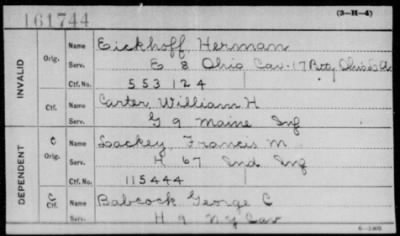 161744 (3-H-4)
INVALID
Orig. Name Eickhoff, Herman
Serv. E 8 Ohio Cav. 17 Batty Ohio L A
Ctf. No. 553124
Ctf. Name Carter, William H
Serv. G 9 Maine Inf
DEPENDENT
C Orig. Name Lackey, Francis M
Serv. H 67 Ind Inf
Ctf. No. 115444
C Ctf. Name Babcock George C
Serv. H 9 N Y Cav